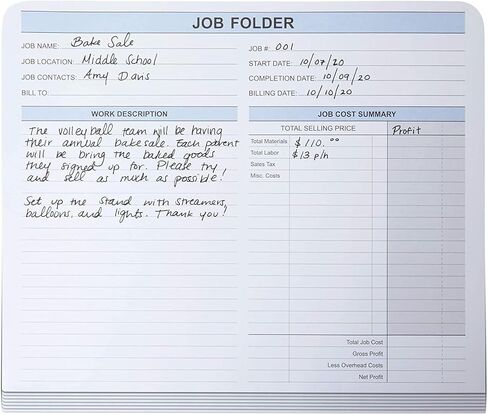 JOB FOLDER
JOB NAME: Bake Sale
JOB LOCATION: Middle School
JOB CONTACTS: Amy Davis
BILL TO:
JOB #: 001
START DATE: 10/07/20
COMPLETION DATE: 10/09/20
BILLING DATE: 10/10/20
WORK DESCRIPTION
The volleyball team will be having
their annual bake sale. Each parent
will be bring the baked goods
they signed up for. Please try
and sell as much as possible!
Set up the stand with streamers,
balloons, and lights. Thank you!
JOB COST SUMMARY
TOTAL SELLING PRICE Profit
Total Materials $110.00
Total Labor $13 p/h
Sales Tax
Misc. Costs
Total Job Cost
Gross Profit
Less Overhead Costs
Net Profit